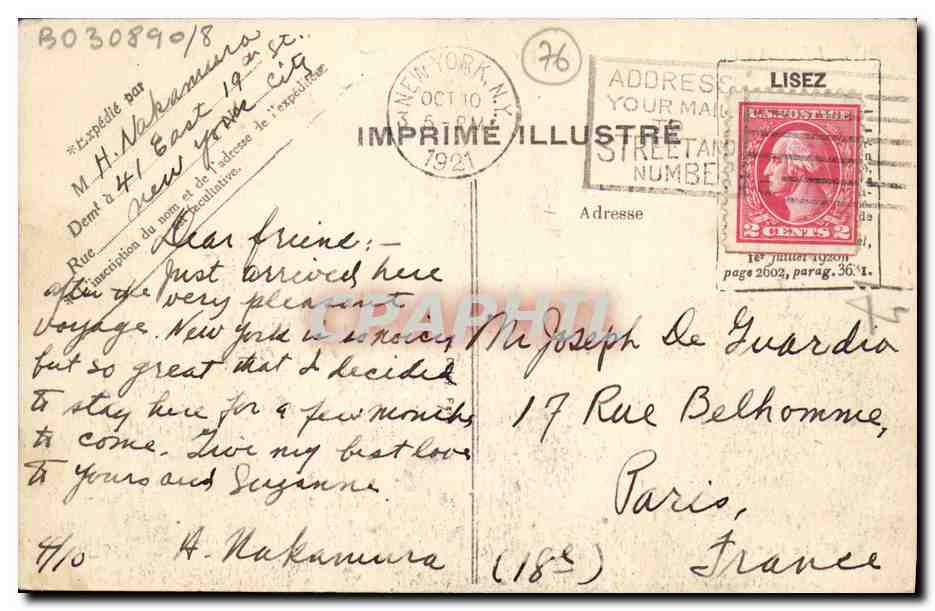 B030890/8
76
*Expédié par
M. H. Nakamura
Demt à 41 East 19th St.
Rue New York City
*L'inscription du nom et de l'adresse de l'expéditeur
est facultative.
NEW YORK, N.Y.
OCT 10
5 - PM
1921
ADDRESS
YOUR MAIL
TO
STREET AND
NUMBER
LISEZ
U.S. POSTAGE
2 CENTS 2
1er juillet 1920
page 2602, parag. 3631.
IMPRIMÉ ILLUSTRÉ
Adresse
Dear friend:—
Just arrived here
after the very pleasant
voyage. New York is so noicy
but so great that I decided
to stay here for a few months
to come. Give my best love
to yours and Suzanne.
4/10 H. Nakamura
Mr Joseph De Guardia
17 Rue Belhomme,
Paris,
(18e) France
CPAPHIL